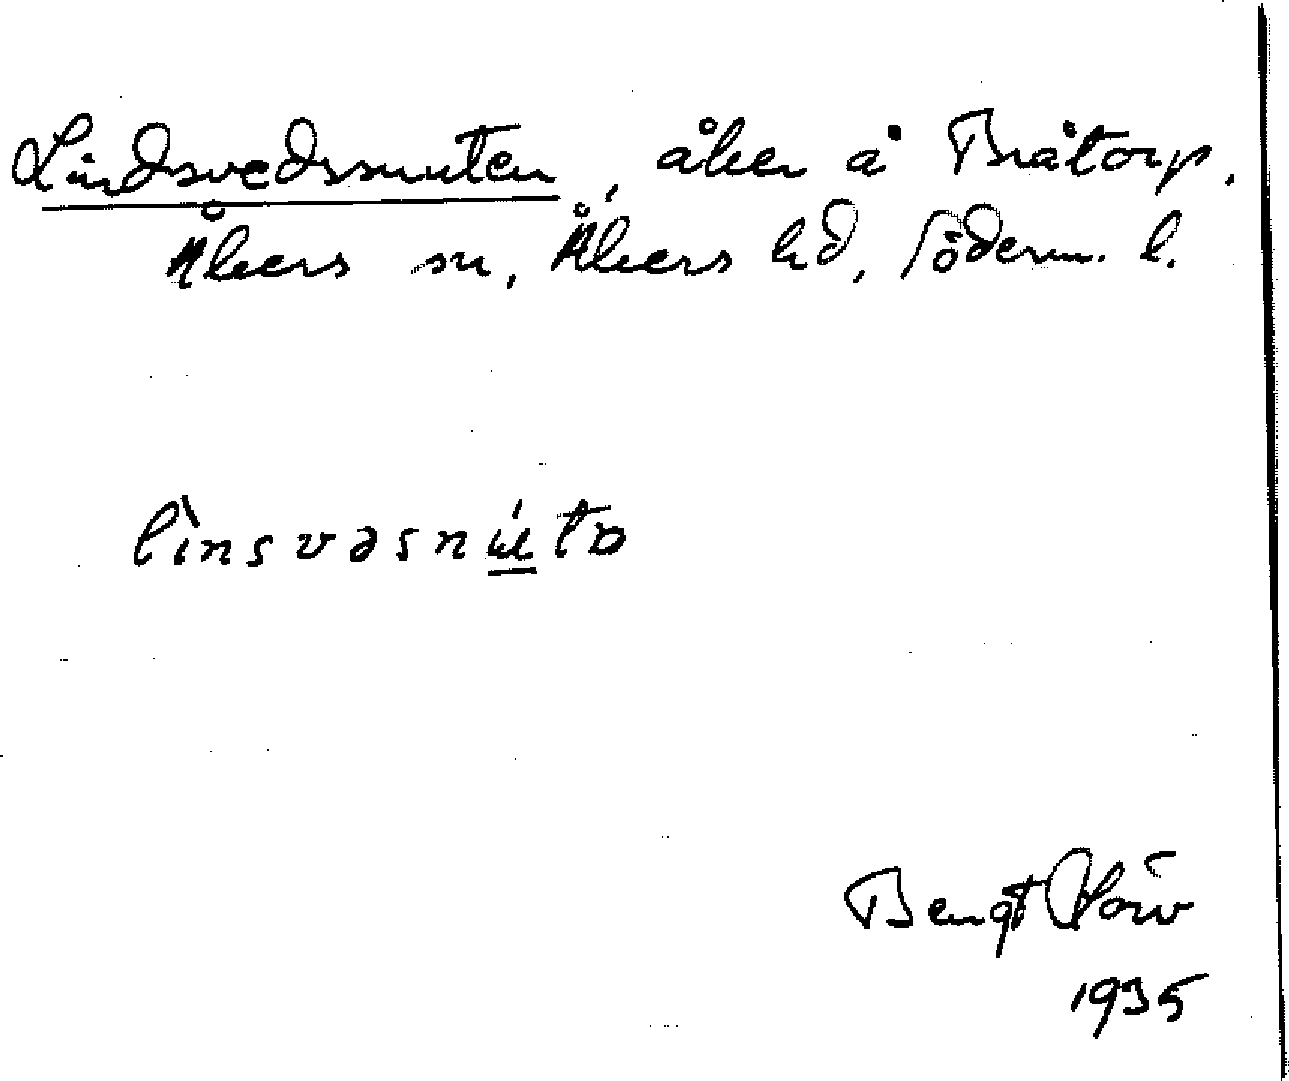 Lindsvedssnuten, åker å Bråtorp.
Åkers sn, Åkers hd, Söderm. l.
lìnsvəsnú̲tɒ
Bengt
1935